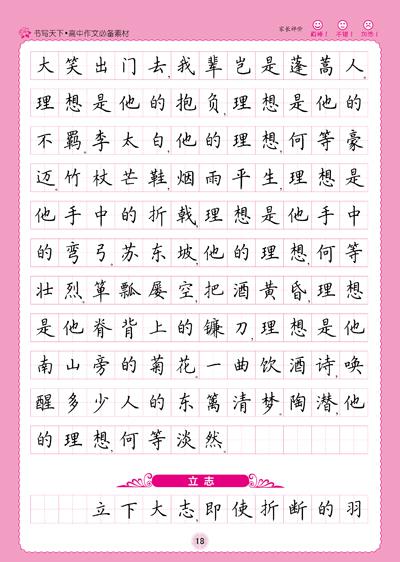 书写天下•高中作文必备素材
家长评价
真棒！ 不错！ 加油！
大笑出门去,我辈岂是蓬蒿人
理想是他的抱负,理想是他的
不羁,李太白,他的理想何等豪
迈。竹杖芒鞋,烟雨平生,理想是
他手中的折戟,理想是他手中
的弯弓。苏东坡,他的理想何等
壮烈。箪瓢屡空,把酒黄昏,理想
是他脊背上的镰刀,理想是他
南山旁的菊花。一曲饮酒诗,唤
醒多少人的东篱清梦。陶潜,他
的理想何等淡然。
立志
立下大志,即使折断的羽
18